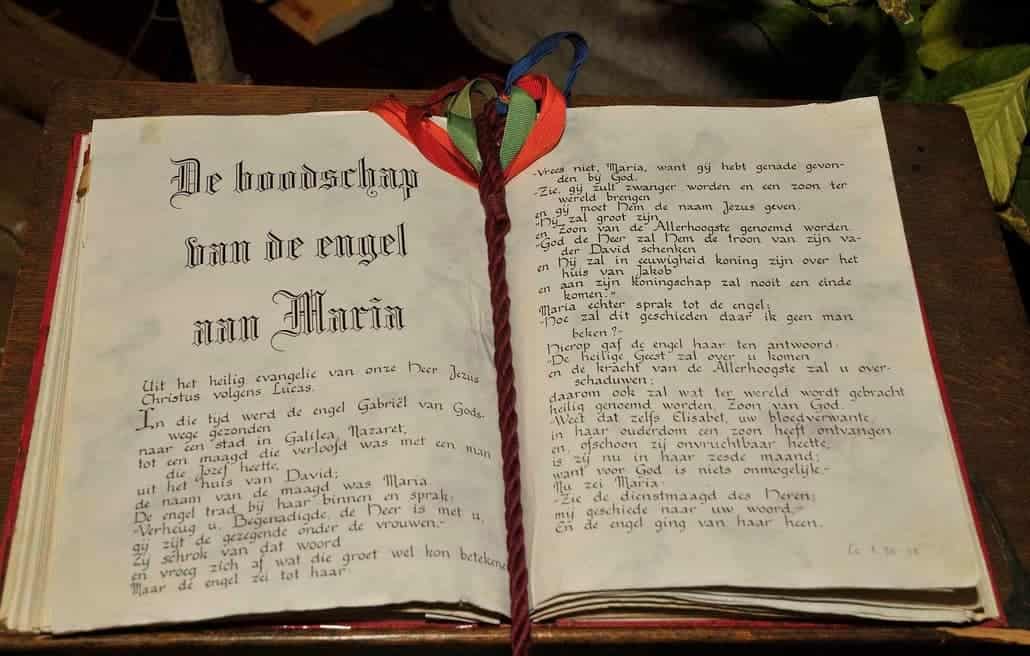 De boodschap
van de engel
aan Maria
Uit het heilig evangelie van onze Heer Jezus
Christus volgens Lucas.
In die tijd werd de engel Gabriël van Gods-
wege gezonden
naar een stad in Galilea, Nazaret,
tot een maagd die verloofd was met een man
die Jozef heette,
uit het huis van David;
de naam van de maagd was Maria.
De engel trad bij haar binnen en sprak:
-Verheug u, Begenadigde, de Heer is met u,
gij zijt de gezegende onder de vrouwen.-
Zij schrok van dat woord
en vroeg zich af wat die groet wel kon betekenen
Maar de engel zei tot haar:
-Vrees niet, Maria, want gij hebt genade gevon-
den bij God.
-Zie, gij zult zwanger worden en een zoon ter
wereld brengen
en gij moet Hem de naam Jezus geven.
-Hij zal groot zijn
en Zoon van de Allerhoogste genoemd worden.
-God de Heer zal Hem de troon van zijn va-
der David schenken
en Hij zal in eeuwigheid koning zijn over het
huis van Jakob
en aan zijn koningschap zal nooit een einde
komen.-
Maria echter sprak tot de engel;
-Hoe zal dit geschieden daar ik geen man
beken?-
Hierop gaf de engel haar ten antwoord:
-De heilige Geest zal over u komen
en de kracht van de Allerhoogste zal u over-
schaduwen;
daarom ook zal wat ter wereld wordt gebracht
heilig genoemd worden, Zoon van God.
-Weet dat zelfs Elisabet, uw bloedverwante,
in haar ouderdom een zoon heeft ontvangen
en, ofschoon zij onvruchtbaar heette,
is zij nu in haar zesde maand;
want voor God is niets onmogelijk.-
Nu zei Maria:
-Zie de dienstmaagd des Heren;
mij geschiede naar uw woord.-
En de engel ging van haar heen.